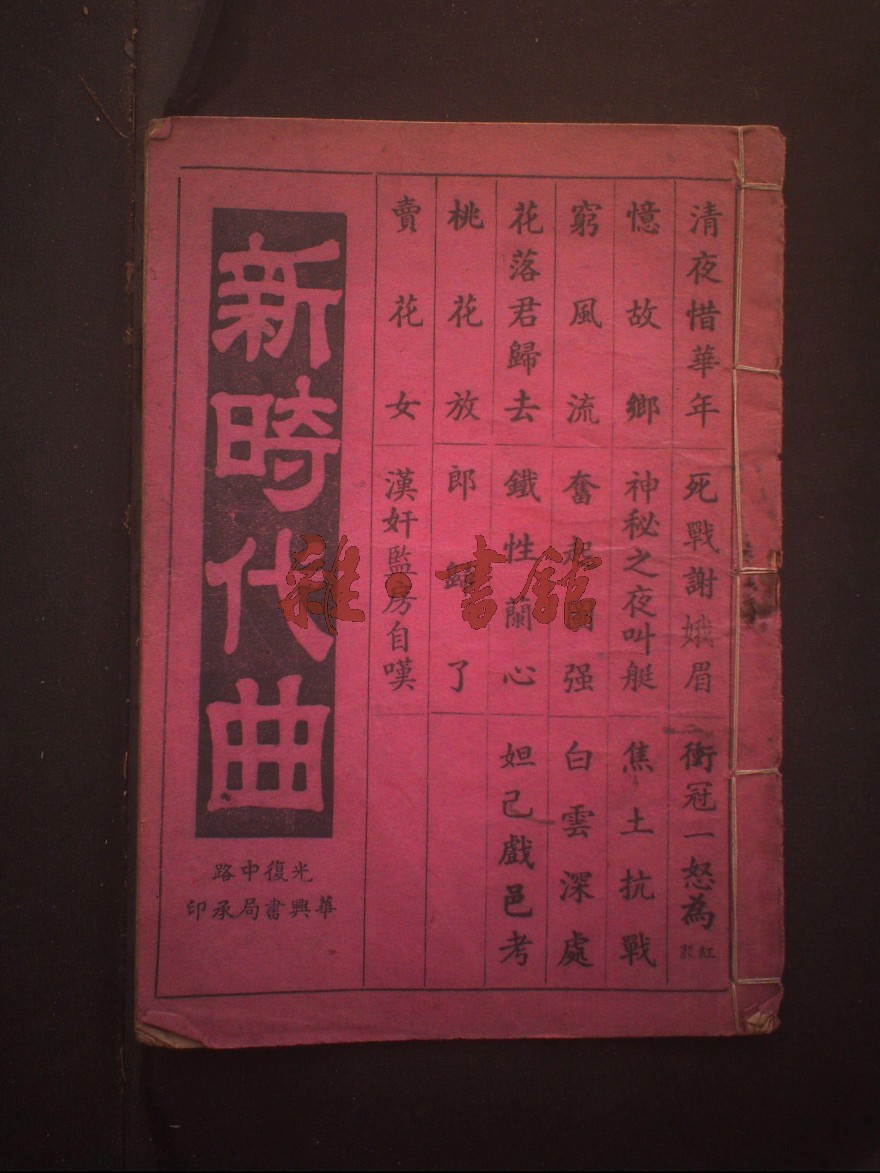 清夜惜華年
死戰謝娥眉
衝冠一怒為紅顏
憶故鄉
神秘之夜叫艇
焦土抗戰
窮風流
奮起自强
白雲深處
花落君歸去
鐵性蘭心
妲己戲邑考
桃花放
郎歸了
賣花女
漢奸監房自嘆
新時代曲
光復中路
華興書局承印
雜·書館